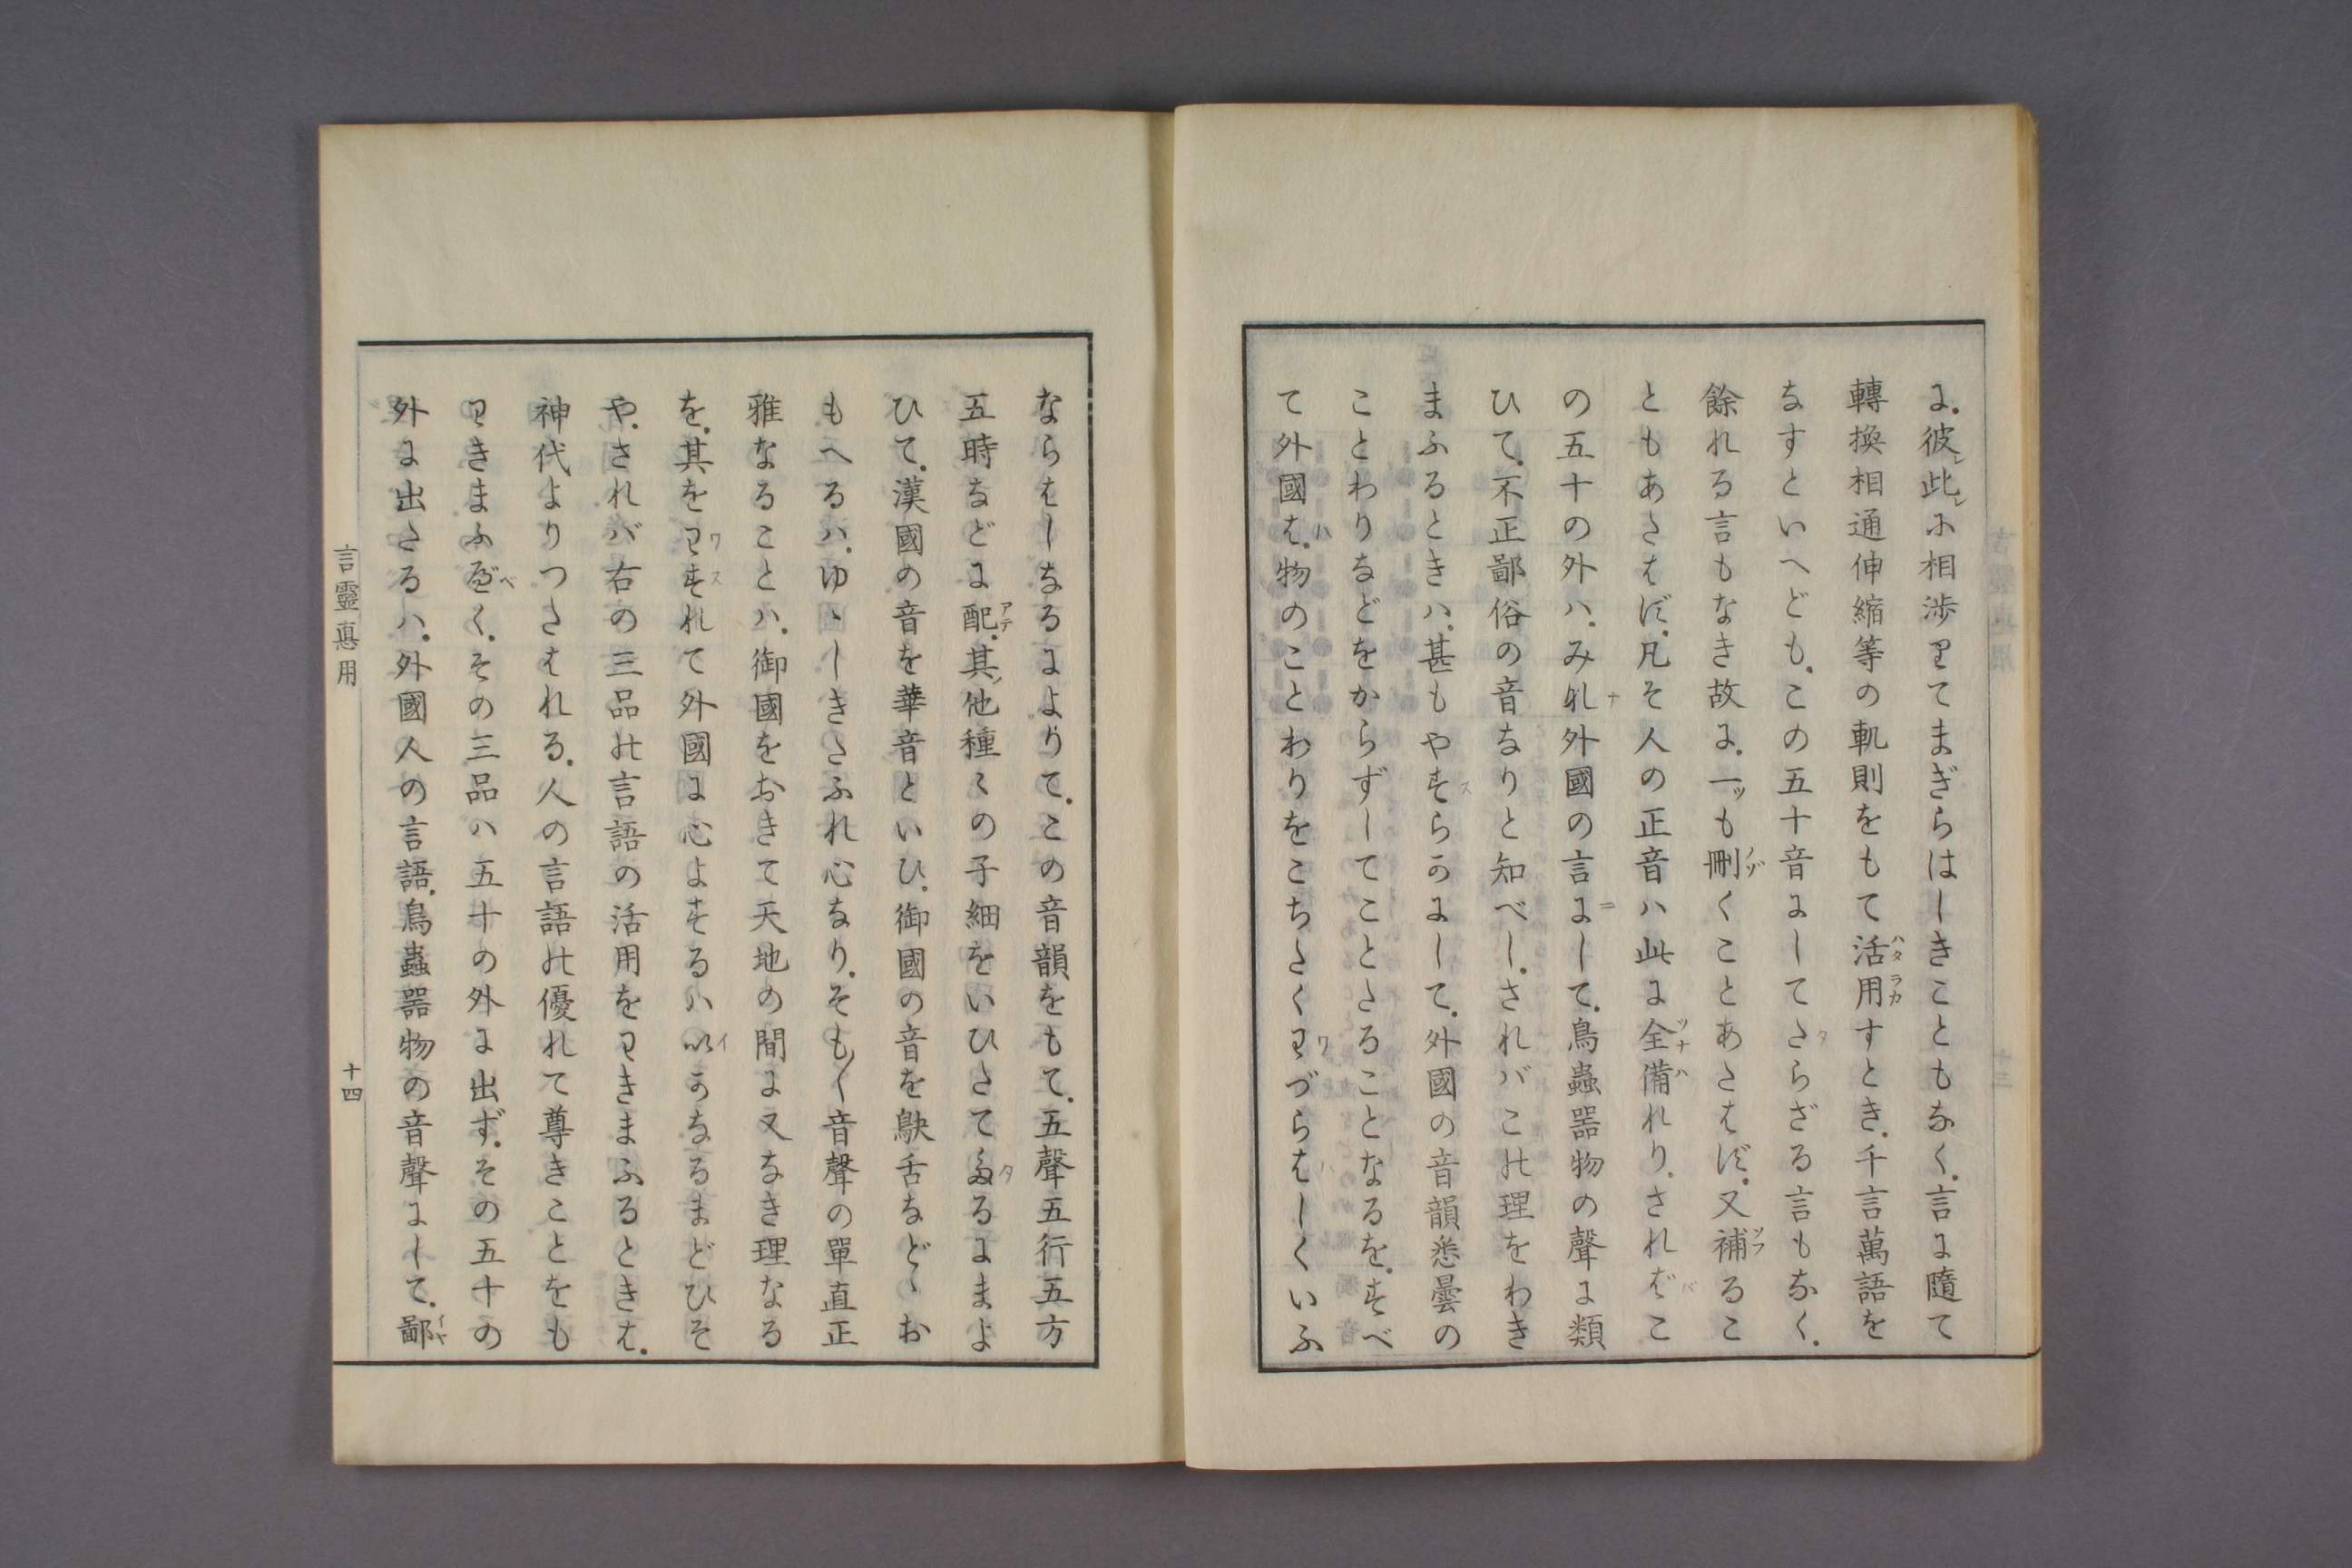 に。彼レ此レに相渉りてまぎらはしきこともなく。言に隨て
轉換相通伸縮等の軌則をもて活用すとき。千言萬語を
なすといへども。この五十音にしてたらざる言もなく。
餘れる言もなき故に。一ツも刪くことあたはず。又補るこ
ともあたはず。凡そ人の正音ハ此に全備れり。さればこ
の五十の外ハ。みな外國の言にして。鳥蟲器物の聲に類
ひて。不正鄙俗の音なりと知べし。されバこの理をわき
まふるときハ。甚もやすらかにして。外國の音韻悉曇の
ことわりなどをからずしてことたることなるを。すべ
て外國は。物のことわりをこちたくわづらはしくいふ
ならはしなるによりて。この音韻をもて。五聲五行五方
五時などに配。其ノ他種〻の子細をいひたてたるにまよ
ひて。漢國の音を華音といひ。御國の音を鴃舌などゝお
もへるハ。ゆゝしきたふれ心なり。そも〳〵音聲の單直正
雅なることハ。御國をおきて天地の間に又なき理なる
を。其をわすれて外國に心よするハいかなるまどひそ
や。されバ右の三品の言語の活用をわきまふるときは。
神代よりつたはれる。人の言語の優れて尊きことをも
わきまふべく。その三品ハ五十の外に出ず。その五十の
外に出たるハ。外國人の言語。鳥蟲器物の音聲にして。鄙
言靈真用
十四